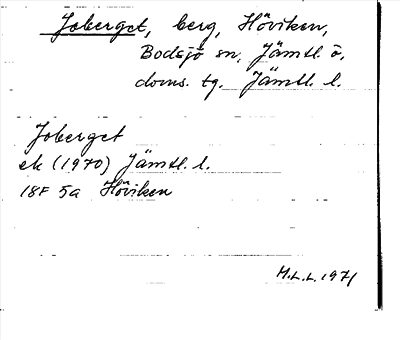 Joberget, berg, Höviken,
Bodsjö sn, Jämtl. ö.
doms. tg. Jämtl. l.
Joberget
ek (1970) Jämtl. l.
18F 5a Höviken
M.L.L. 1971